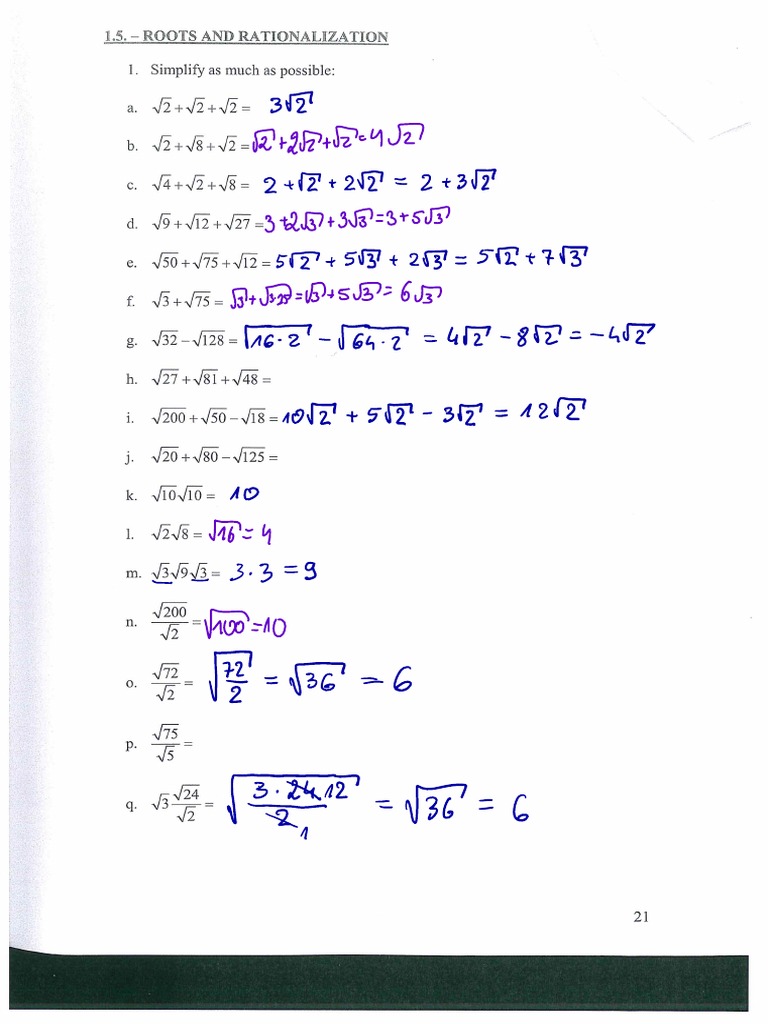 1.5. – ROOTS AND RATIONALIZATION
1. Simplify as much as possible:
a. √2 + √2 + √2 = 3√2
b. √2 + √8 + √2 = √2 + 2√2 + √2 = 4√2
c. √4 + √2 + √8 = 2 + √2 + 2√2 = 2 + 3√2
d. √9 + √12 + √27 = 3 + 2√3 + 3√3 = 3 + 5√3
e. √50 + √75 + √12 = 5√2 + 5√3 + 2√3 = 5√2 + 7√3
f. √3 + √75 = √3 + √(3·25) = √3 + 5√3 = 6√3
g. √32 – √128 = √(16·2) – √(64·2) = 4√2 – 8√2 = –4√2
h. √27 + √81 + √48 =
i. √200 + √50 – √18 = 10√2 + 5√2 – 3√2 = 12√2
j. √20 + √80 – √125 =
k. √10√10 = 10
l. √2√8 = √16 = 4
m. √3√9√3 = 3·3 = 9
n. √200/√2 = √100 = 10
o. √72/√2 = √(72/2) = √36 = 6
p. √75/√5 =
q. √3 √24/√2 = √(3·24 12/2 1) = √36 = 6
21